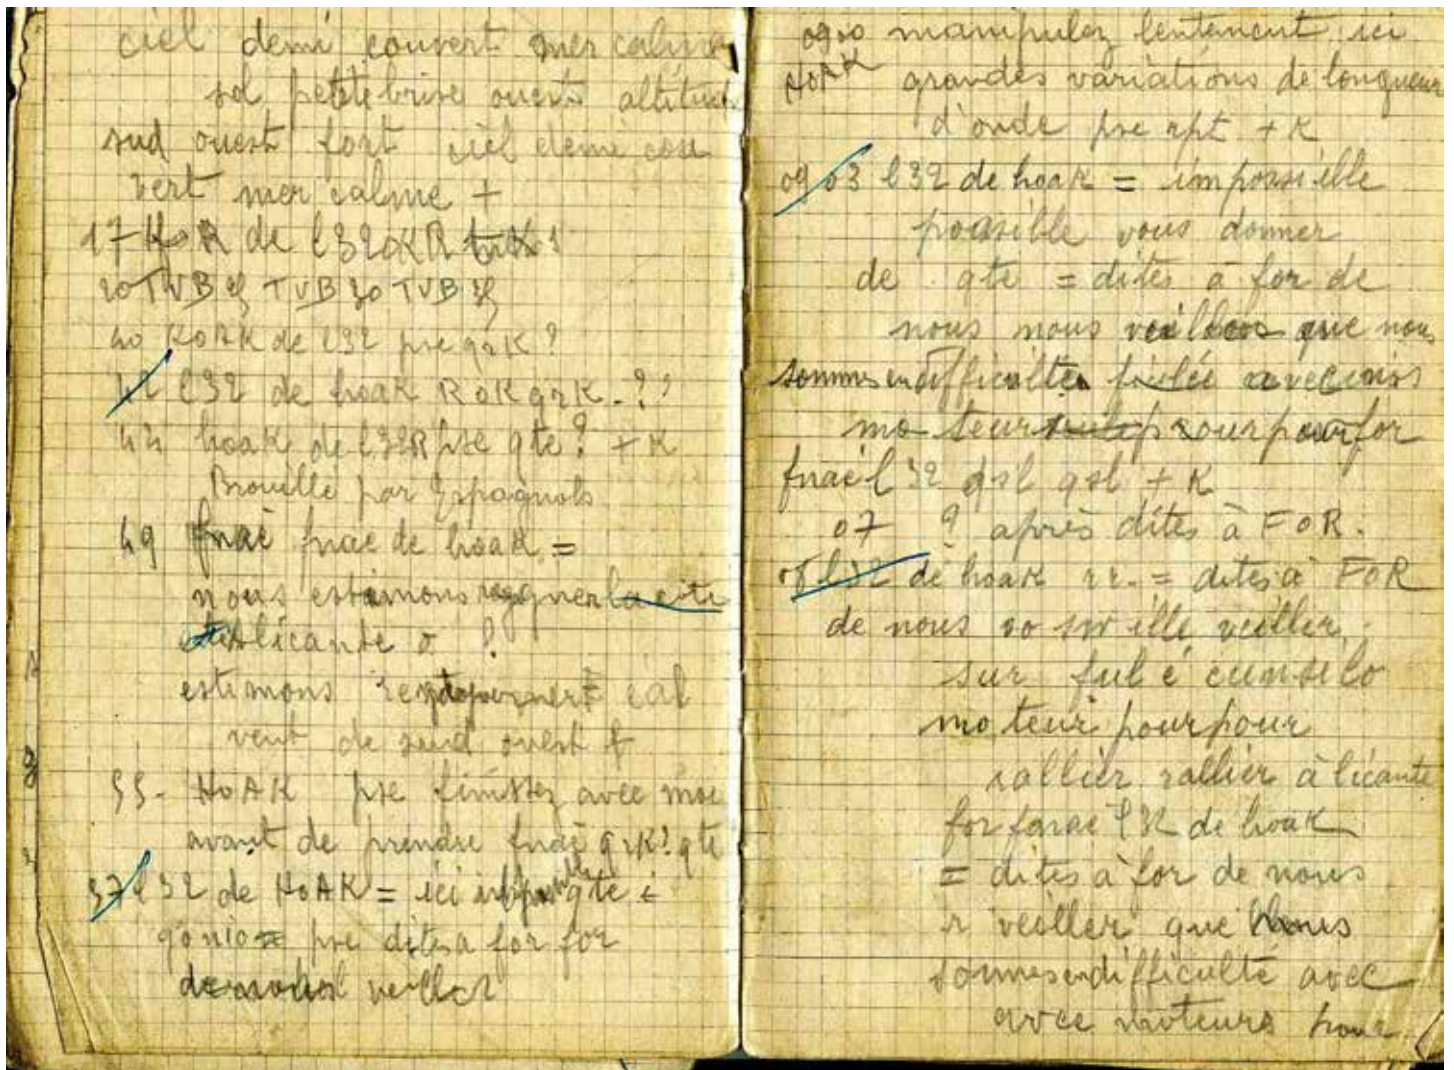 ciel demi couvert mer calme
sol petite brise ouest altitude
sud ouest fort ciel demi cou
vert mer calme +
17 HoAR de l32 OKR
20 TVB TVB 30 TVB
40 HOAK de l32 pse qrk ?
42 l32 de hoak R OK qrk - ??
44 hoak de l32 R pse qte ? + K
Brouillé par Espagnols
49 fnac fnac de hoak =
nous estimons regagner la citi
alicante o ?
estimons cal
vent de sud ouest +
55 - HOAK pse finissez avec moi
avant de prendre fnac qrk ! qte
57 l32 de HOAK = ici qte è
gonio = pse dites a for for
de nous veiller
0900 manipulez lentement ici
HOAK grandes variations de longueur
d'onde pse rpt + K
09 03 l32 de hoak = impossible
possible vous donner
de qte = dites à for de
nous nous veiller que nous
sommes en difficultés avec
mo teur pour pour for
fnac l32 qsl qsl + K
07 ? après dites à FOR .
08 l32 de hoak rr . = dites à FOR
de nous veiller
sur
mo teur pour pour
rallier rallier à licante
for fnac l32 de hoak
= dites à for de nous
r veiller que nous
sommes en difficulté avec
avec moteurs pour